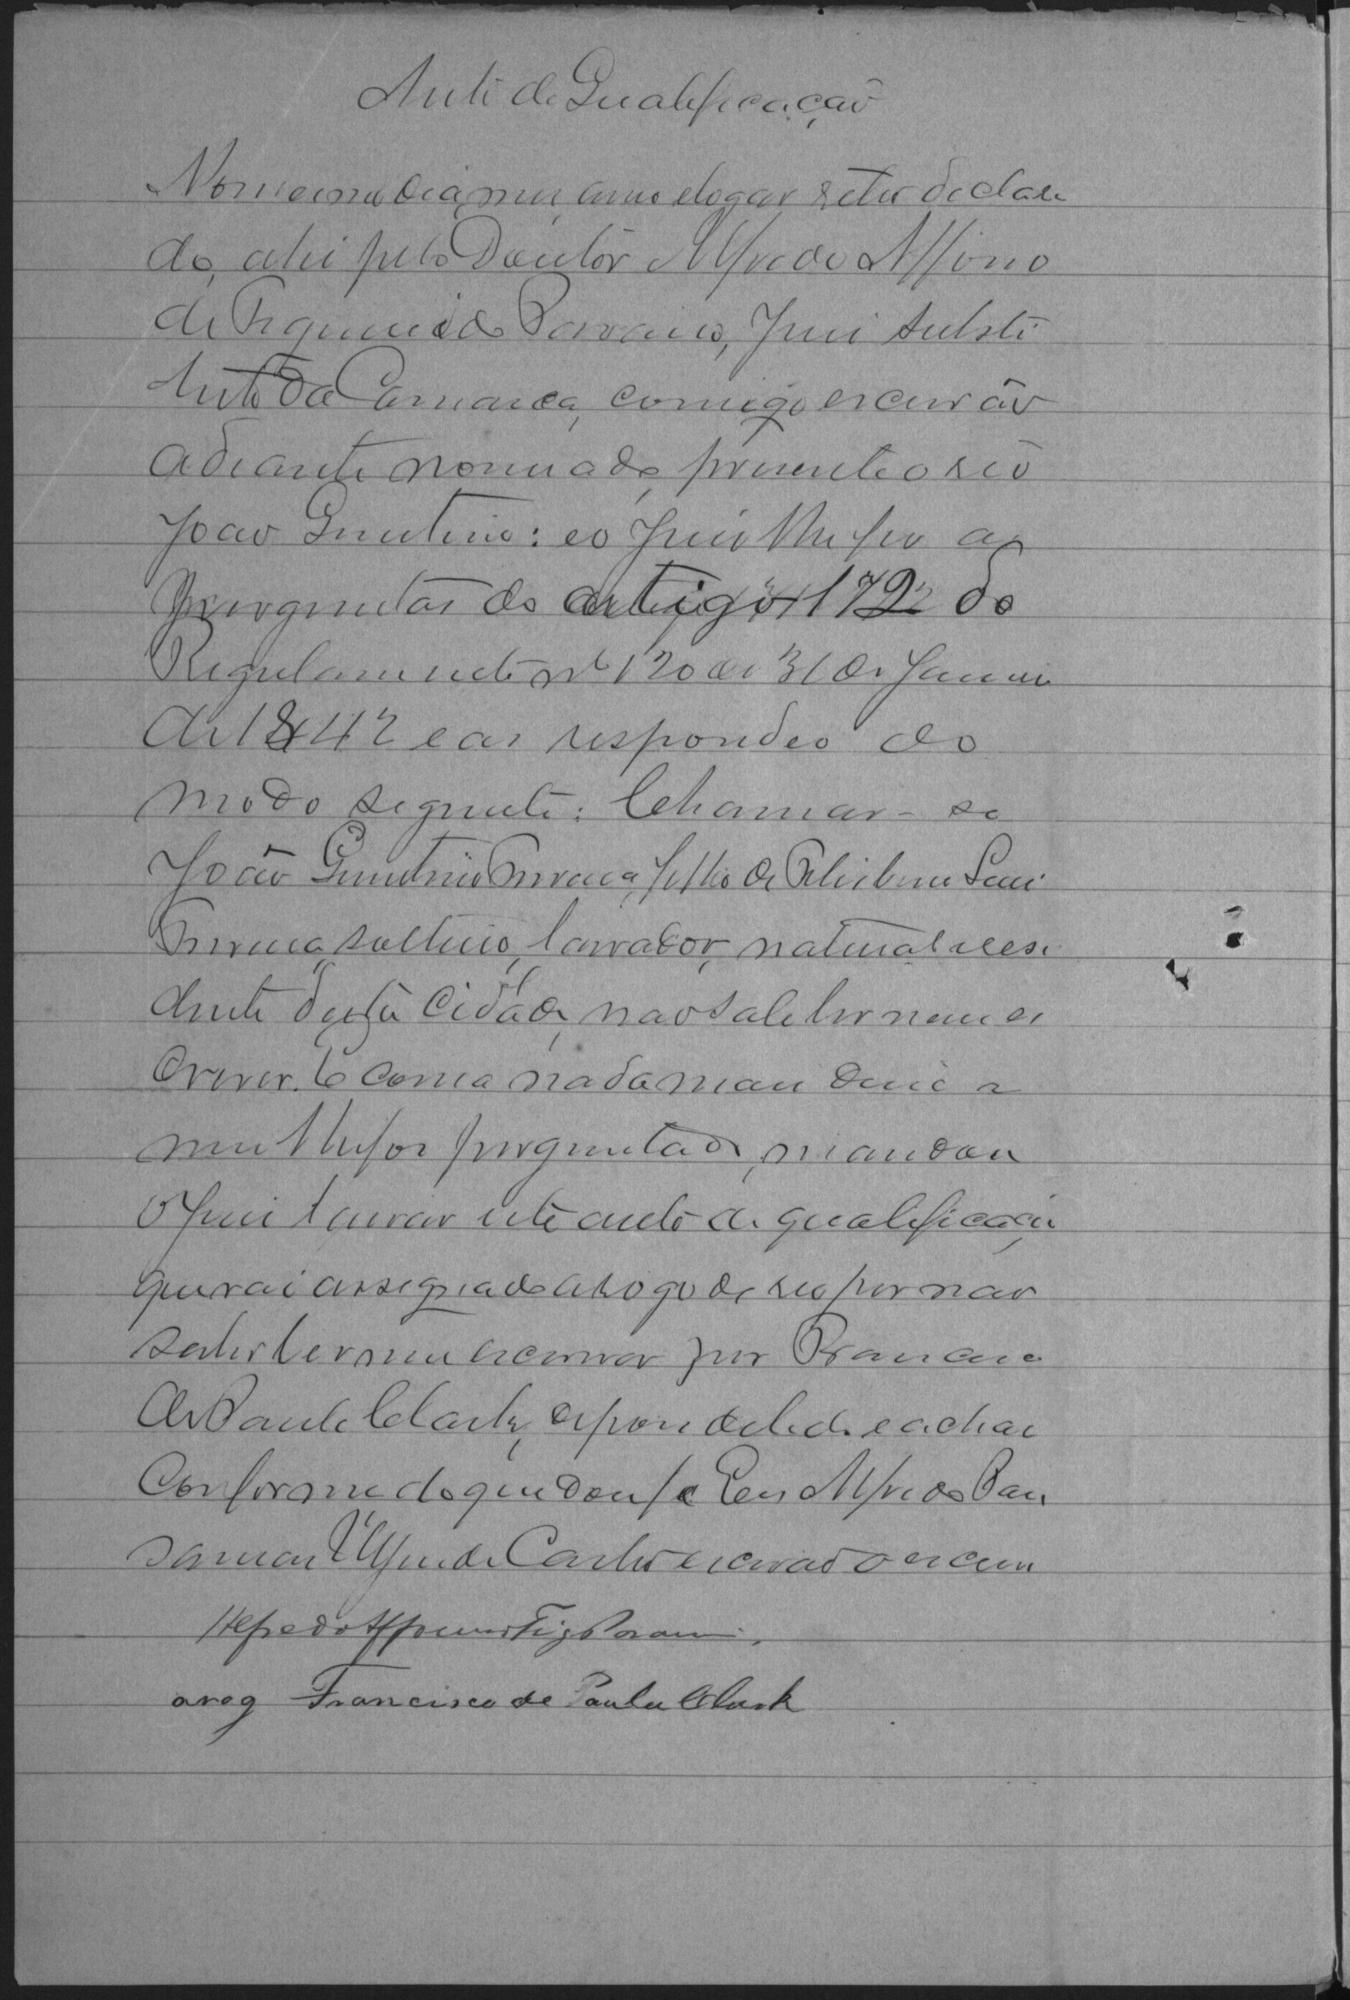 Auto de Qualificação
No mesmo dia, mez, anno e logar retro declara
do, ahi pelo Doutor Alfredo Affonso
de Figueiredo Paraiso, Juiz Substi
tuto da Comarca, comigo escrivão
adeante nomeado, presente o reo
João Quintino: e o Juiz lhe fez as
perguntas do artigo 172 do
Regulamento nº 120 de 31 de Janeiro
de 1842 e as respondeo do
modo seguinte: Chamar-se
João Quintino filho de
solteiro, lavrador, natural e resi
dente desta Cidade, não sabe ler nem es
crever. E como nada mais disse e
nem lhe foi perguntado, mandou
o Juiz lavrar este auto de qualificação
que vai assignado a rogo do reo por não
saber ler nem escrever por Francisco
de Paula Clark, depois de lido e achar
conforme do que dou fé Eu Alfredo
de Castro escrivão o escrevi
Alfredo Affonso Figdo Paraiso.
arog Francisco de Paula Clark